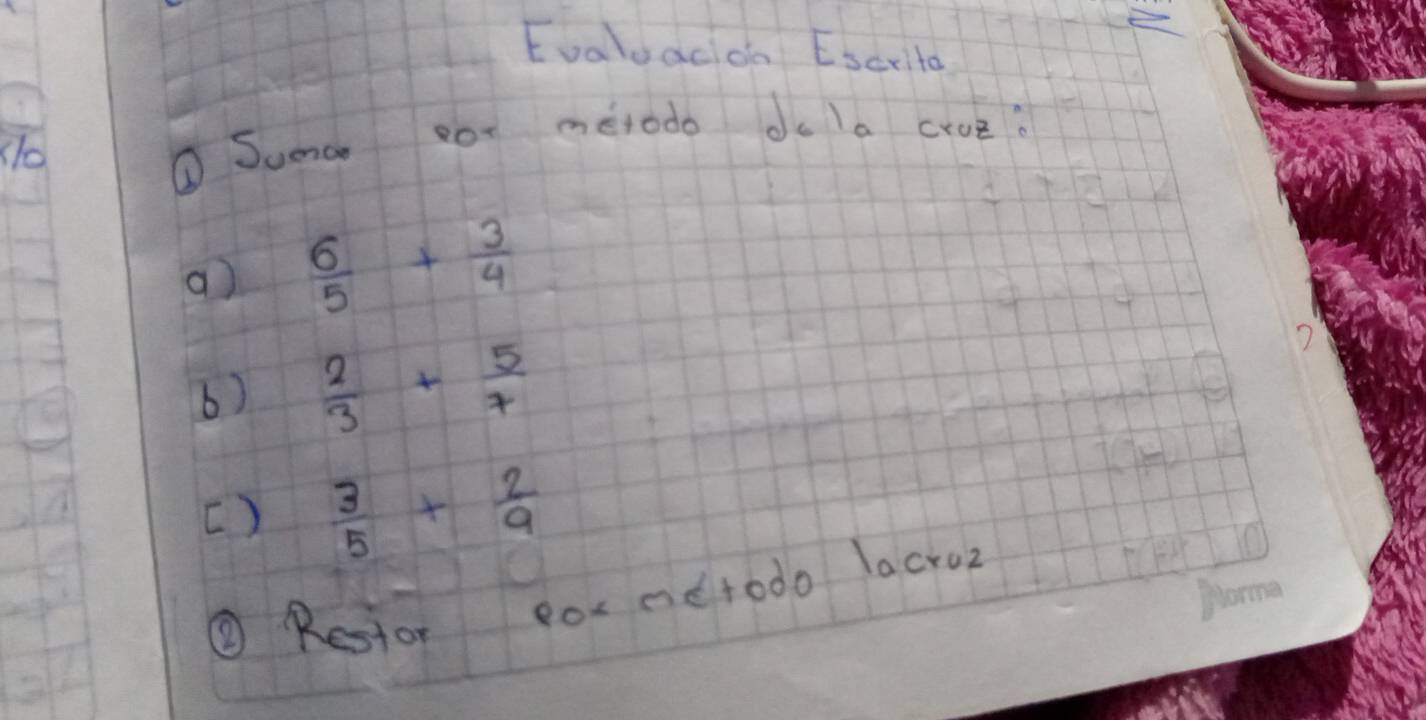 Evaluación Escrita
① Sumar por método de la cruz:
a) 6/5 + 3/4
b) 2/3 + 5/7
c) 3/5 + 2/9
② Restar por método la cruz
Norma